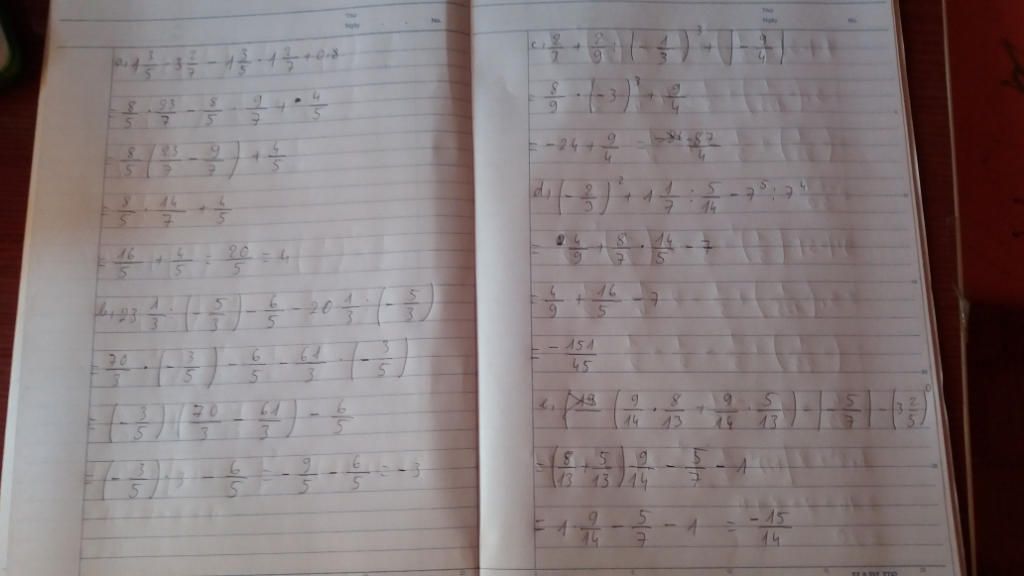 Thứ
Ngày
No.
a, 1 3/5 · 3 2/7 - 1 3/5 · 1 2/7 + 0,8
= 8/5 · 23/7 - 8/5 · 9/7 + 4/5
= 8/5 (23/7 - 9/7) + 4/5
= 8/5 · 14/7 + 4/5
= 16/5 + 4/5 = 20/5 = 4
b, 23 1/3 : (-5/3) - 6/5 - 20 1/3 : (-5/3)
= 70/3 · (-3/5) - 6/5 - 61/3 · (-3/5)
= (-3/5) (70/3 - 61/3) - 6/5
= (-3/5) · 3 - 6/5 = -9/5 - 6/5 = -3
Thứ
Ngày
No.
= 8/9 · (-3)³ + 9/4
= -24 + 9/4 = -87/4
= 4/9 + 8/7 · 14/5 - 7
= 4/9 + 16/5 - 7
= -151/45
(9/14 · 8/13 + 9/14 · 5/13) - |-5/7| - (3 2/5)⁰
= (8/13 + 5/13) 9/14 - 5/7 - 1
= 1 · 9/14 - 5/7 - 1 = -15/14